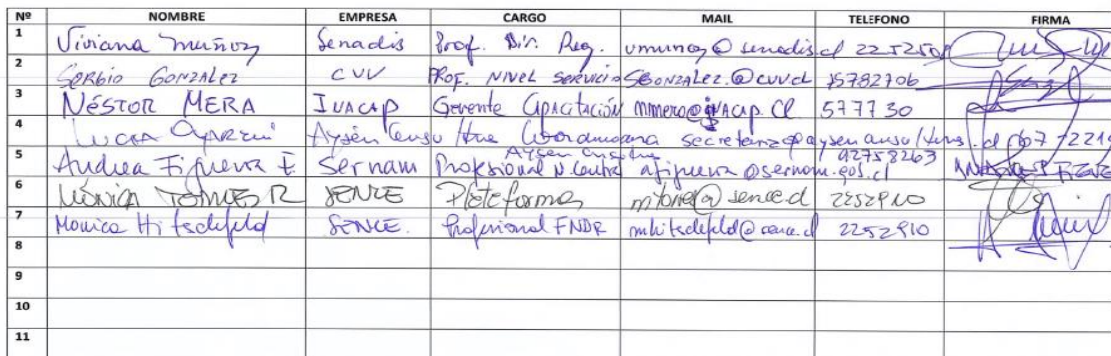 Nº NOMBRE EMPRESA CARGO MAIL TELEFONO FIRMA
1 Viviana Muñoz Senadis Prof. Dir. Reg. vmunoz@senadis.cl
2 SERGIO GONZALEZ CVV PROF. NIVEL SERVICIO SGONZALEZ.@cvv.cl 15782706
3 NÉSTOR MERA INACAP Gerente Capacitación mmera@INACAP.Cl 577730
4 LUCIA Aysén Coordinadora
Aysen 92758263
5 Andrea Figueroa F. Sernam Profesional N. Central afigueroa@sernam.gob.cl
6 MÓNICA SENCE Plataforma 2252910
7 Monica Hitschfeld SENCE. Profesional FNDR mhitschfeld@sence.cl 2252910
8
9
10
11